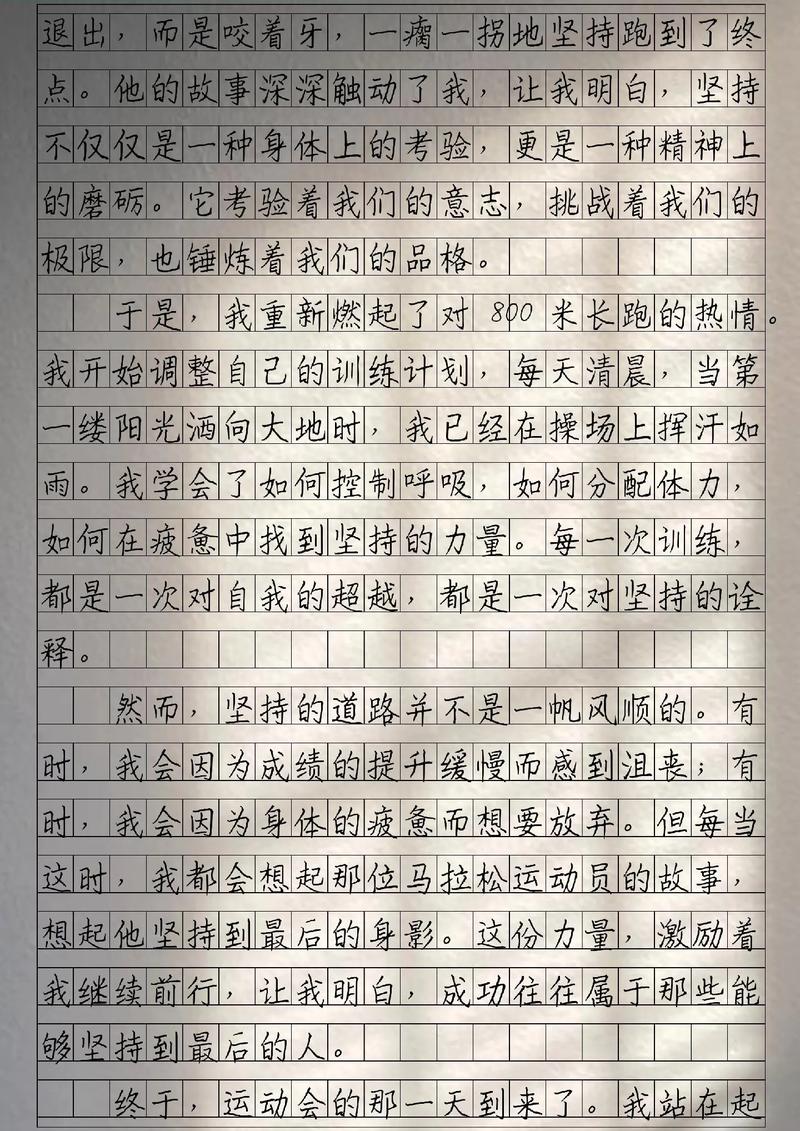 退出，而是咬着牙，一瘸一拐地坚持跑到了终
点。他的故事深深触动了我，让我明白，坚持
不仅仅是一种身体上的考验，更是一种精神上
的磨砺。它考验着我们的意志，挑战着我们的
极限，也锤炼着我们的品格。
于是，我重新燃起了对 800 米长跑的热情。
我开始调整自己的训练计划，每天清晨，当第
一缕阳光洒向大地时，我已经在操场上挥汗如
雨。我学会了如何控制呼吸，如何分配体力，
如何在疲惫中找到坚持的力量。每一次训练，
都是一次对自我的超越，都是一次对坚持的诠
释。
然而，坚持的道路并不是一帆风顺的。有
时，我会因为成绩的提升缓慢而感到沮丧；有
时，我会因为身体的疲惫而想要放弃。但每当
这时，我都会想起那位马拉松运动员的故事，
想起他坚持到最后的身影。这份力量，激励着
我继续前行，让我明白，成功往往属于那些能
够坚持到最后的人。
终于，运动会的那一天到来了。我站在起